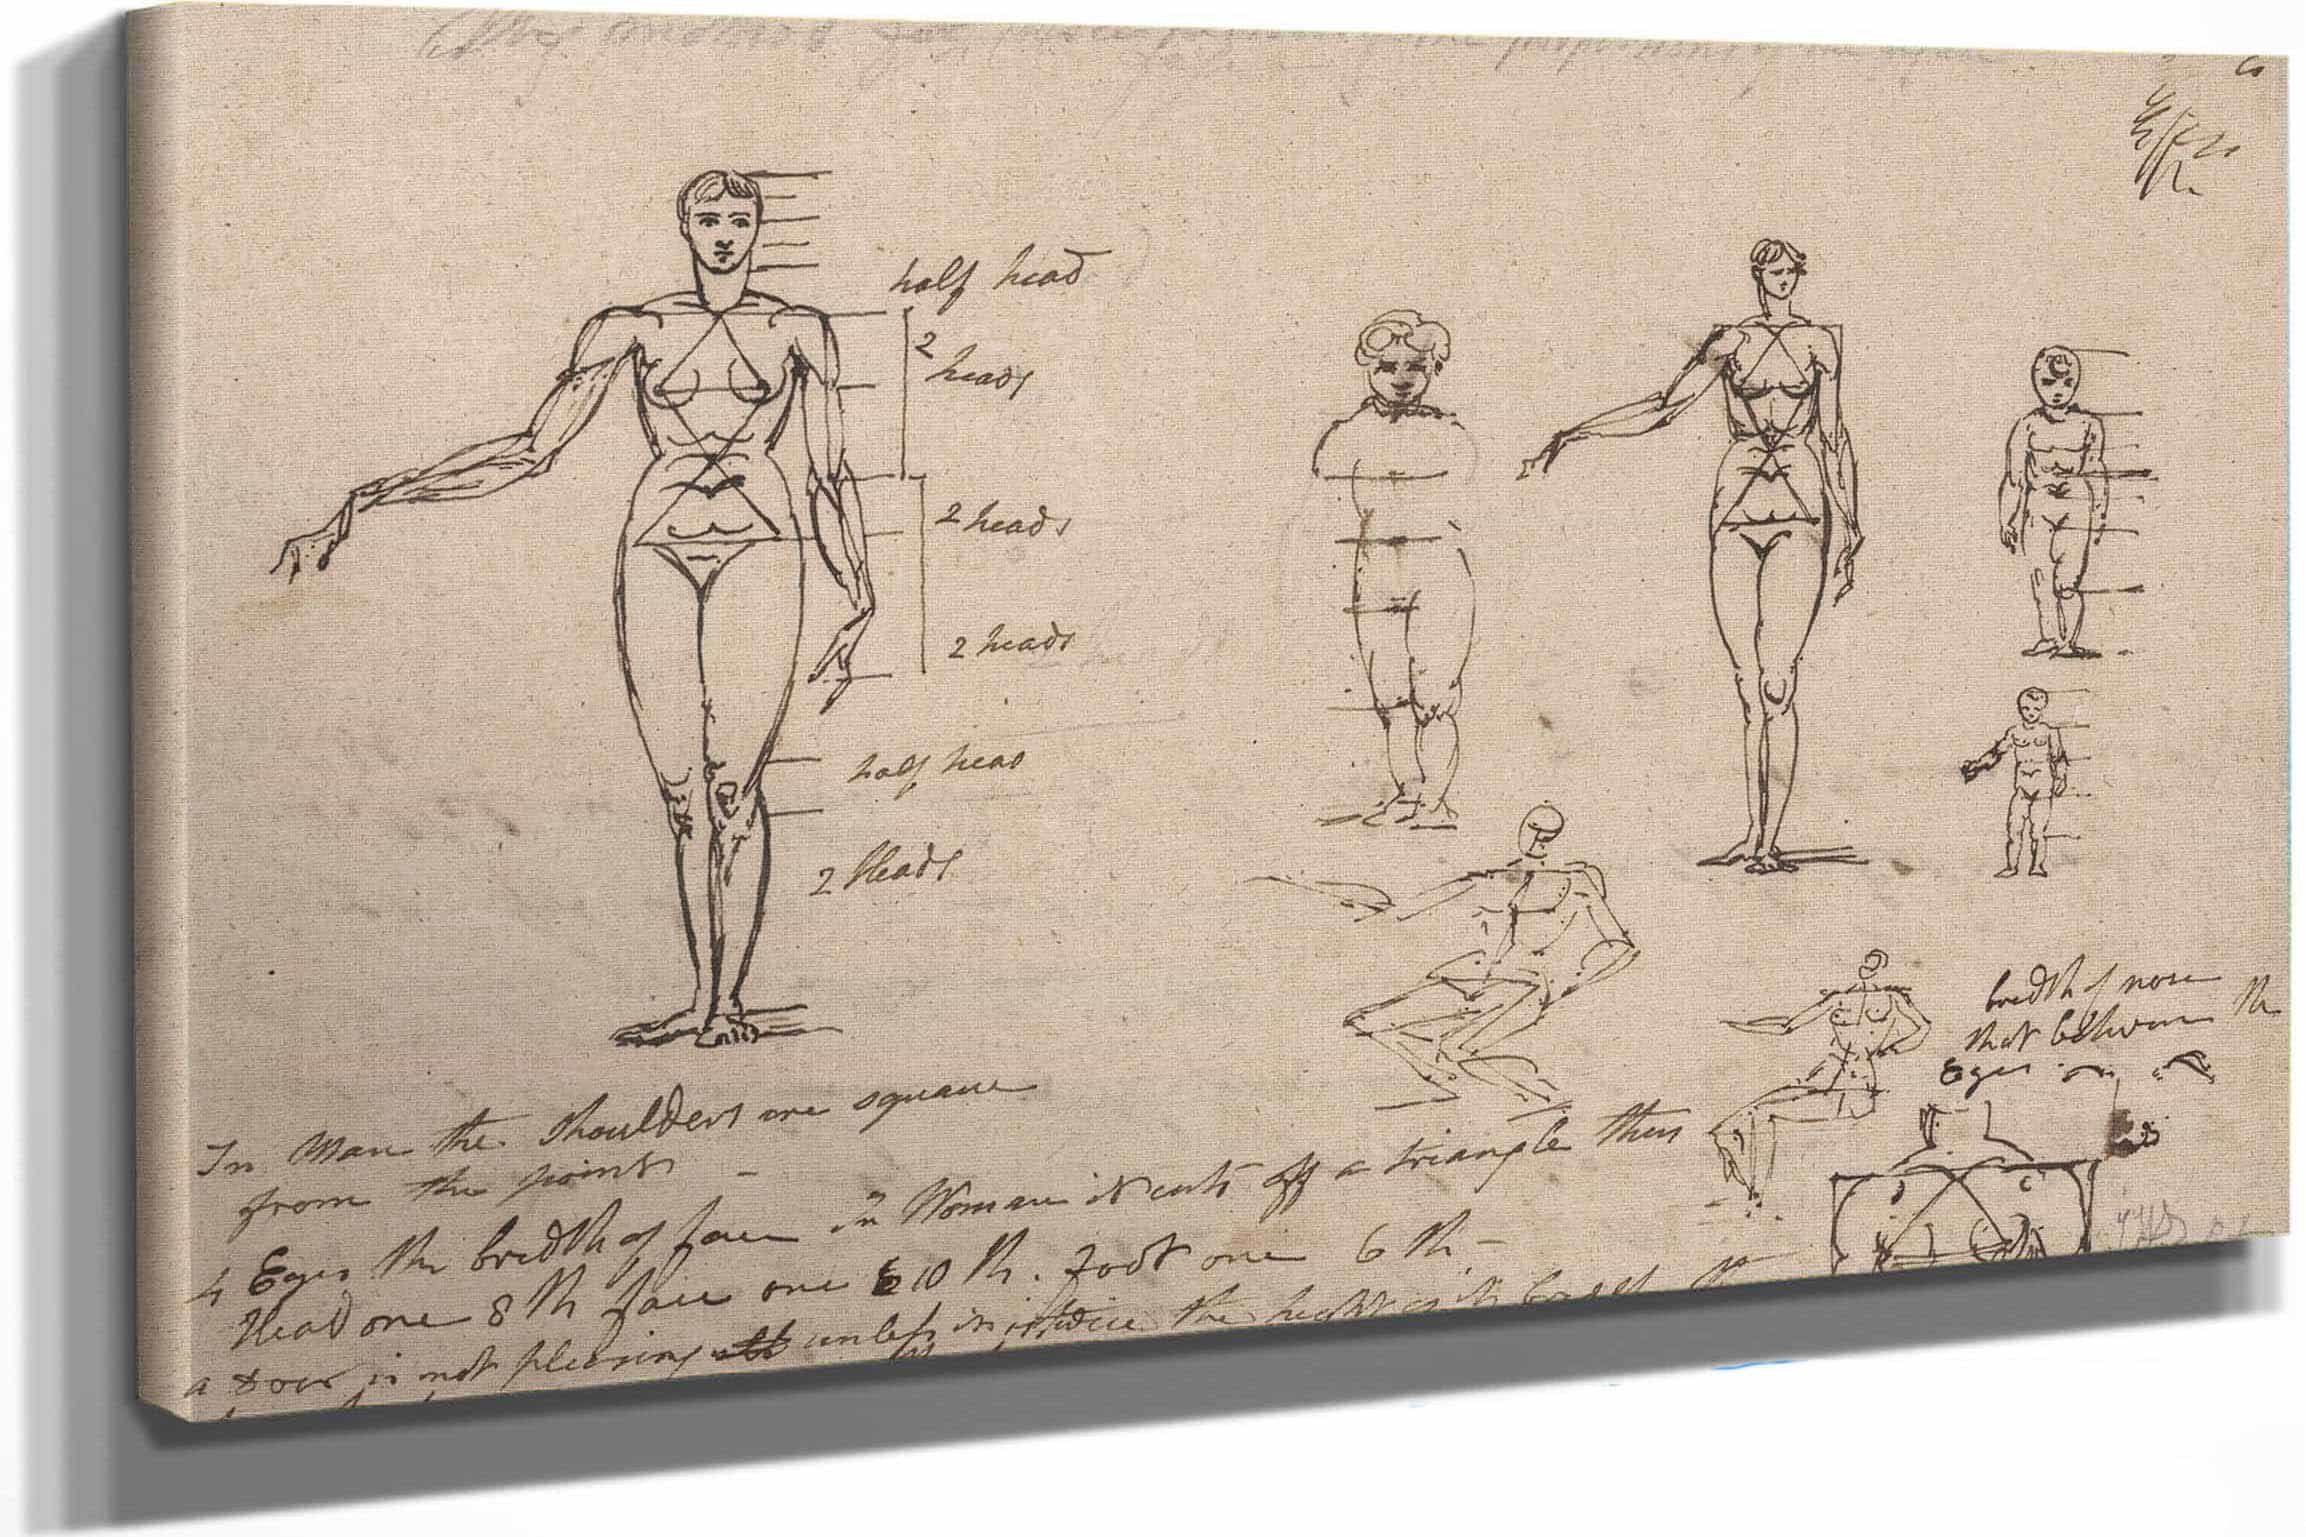 half head
2
heads
2 heads
2 heads
half head
2 Heads
bredth of nose
that between the
Eyes
In Man the Shoulders are square
from the points -
in Woman it cuts off a triangle thus
4 Eyes the bredth of face
Head one 8th face one 10th. foot one 6th -
a Door is not pleasing unless it is twice the height